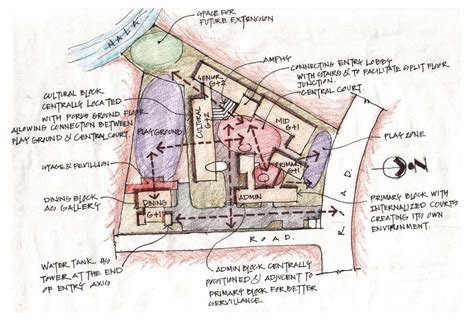 SPACE FOR
FUTURE EXTENSION
NALA
AMPHI
CONNECTING ENTRY LOBBY
WITH STAIRS & TO FACILITATE SPLIT FLOOR
JUNCTION.
CENTRAL COURT.
CULTURAL BLOCK
CENTRALLY LOCATED
WITH POROUS GROUND FLOOR
ALLOWING CONNECTION BETWEEN
PLAY GROUND & CENTRAL COURT.
SENIOR
G+2
CULTURAL
G+2
MID
G+1
PLAYGROUND
PRIMARY
G+1
PLAY ZONE
STAGE & PEVILLION
N
DINING BLOCK
AS GALLERY
DINING
G+1
ADMIN
PRIMARY BLOCK WITH
INTERNALIZED COURTS
CREATING ITS OWN
ENVIRONMENT.
ROAD
ROAD.
WATER TANK AS
TOWER AT THE END
OF ENTRY AXIS
ADMIN BLOCK CENTRALLY
POSITIONED & ADJUCENT TO
PRIMARY BLOCK FOR BETTER
SERVILLANCE.